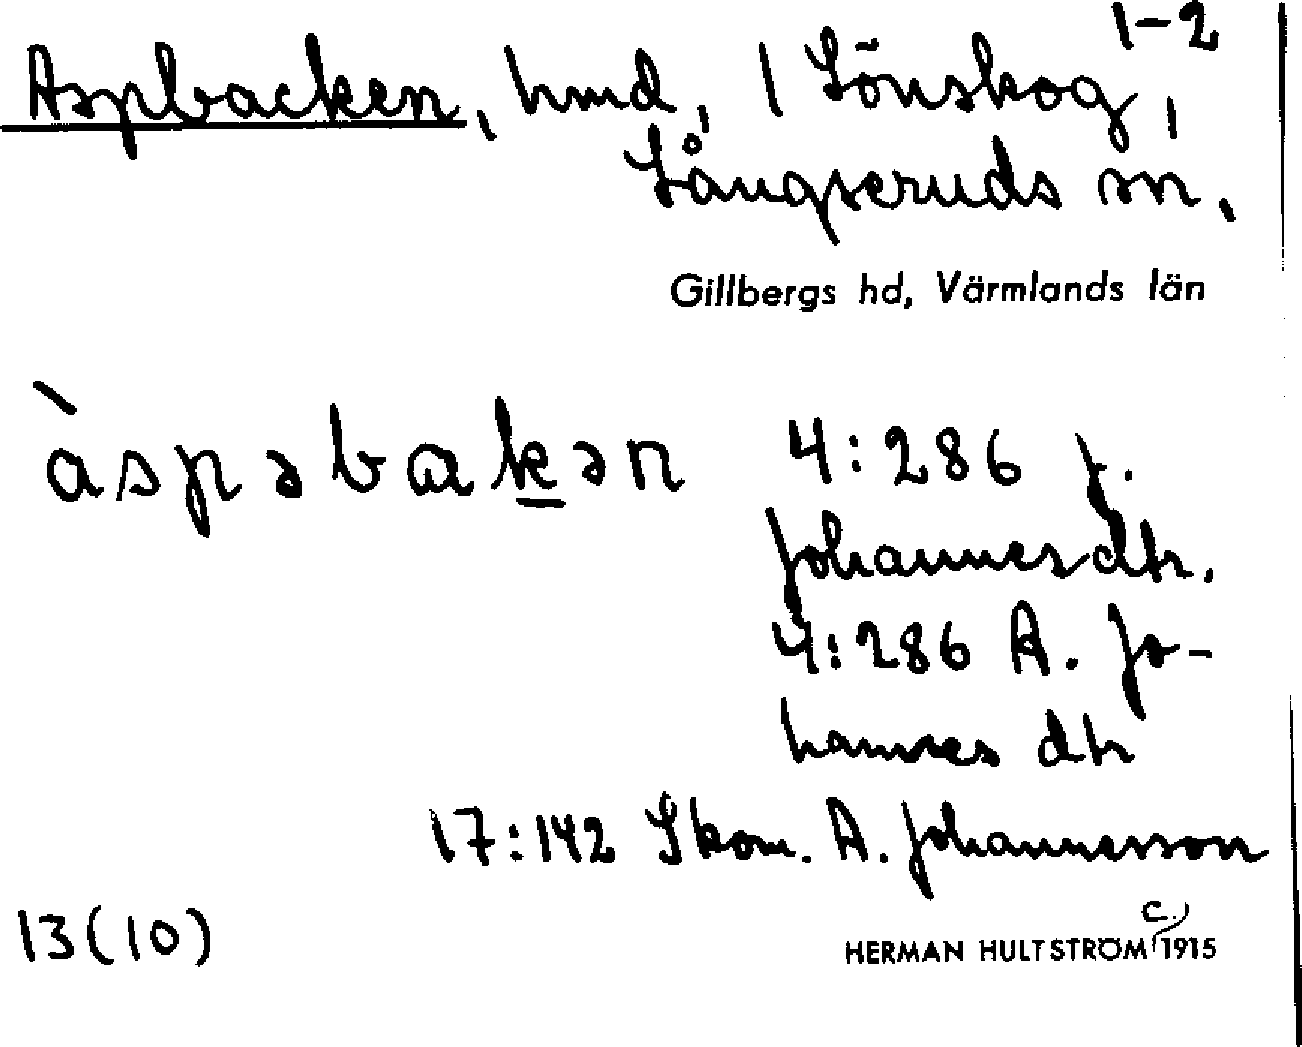 Aspbacken, hmd, 1 Lönskog 1-2,
Långseruds sn,
Gillbergs hd, Värmlands län
àspəbakən 4:286 J.
Johannesdtr.
4:286 A. Jo-
hannes dtr
17:142 Skom. A. Johannesson
13(10)
HERMAN HULTSTRÖM c. 1915